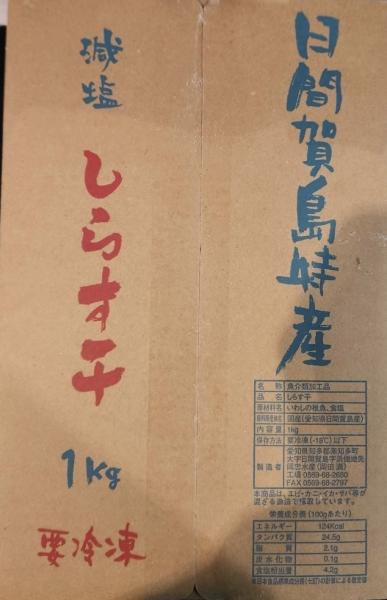 日間賀島特産
減塩
しらす干
1kg
要冷凍
名 称 魚介類加工品
品 名 しらす干
原材料名 いわしの稚魚、食塩
原料原産地名 国産(愛知県日間賀島産)
内容量 1kg
保存方法 要冷凍(-18℃)以下
製造者 愛知県知多郡南知多町
大字日間賀島字呑海地先
工場 0569-68-2680
FAX 0569-68-2797
本商品は、エビ・カニ・イカ・サバ等が
混ざる漁法で採取しています。
栄養成分表(100gあたり)
エネルギー 124Kcal
タンパク質 24.5g
脂 質 2.1g
炭水化物 0.1g
食塩相当量 4.2g